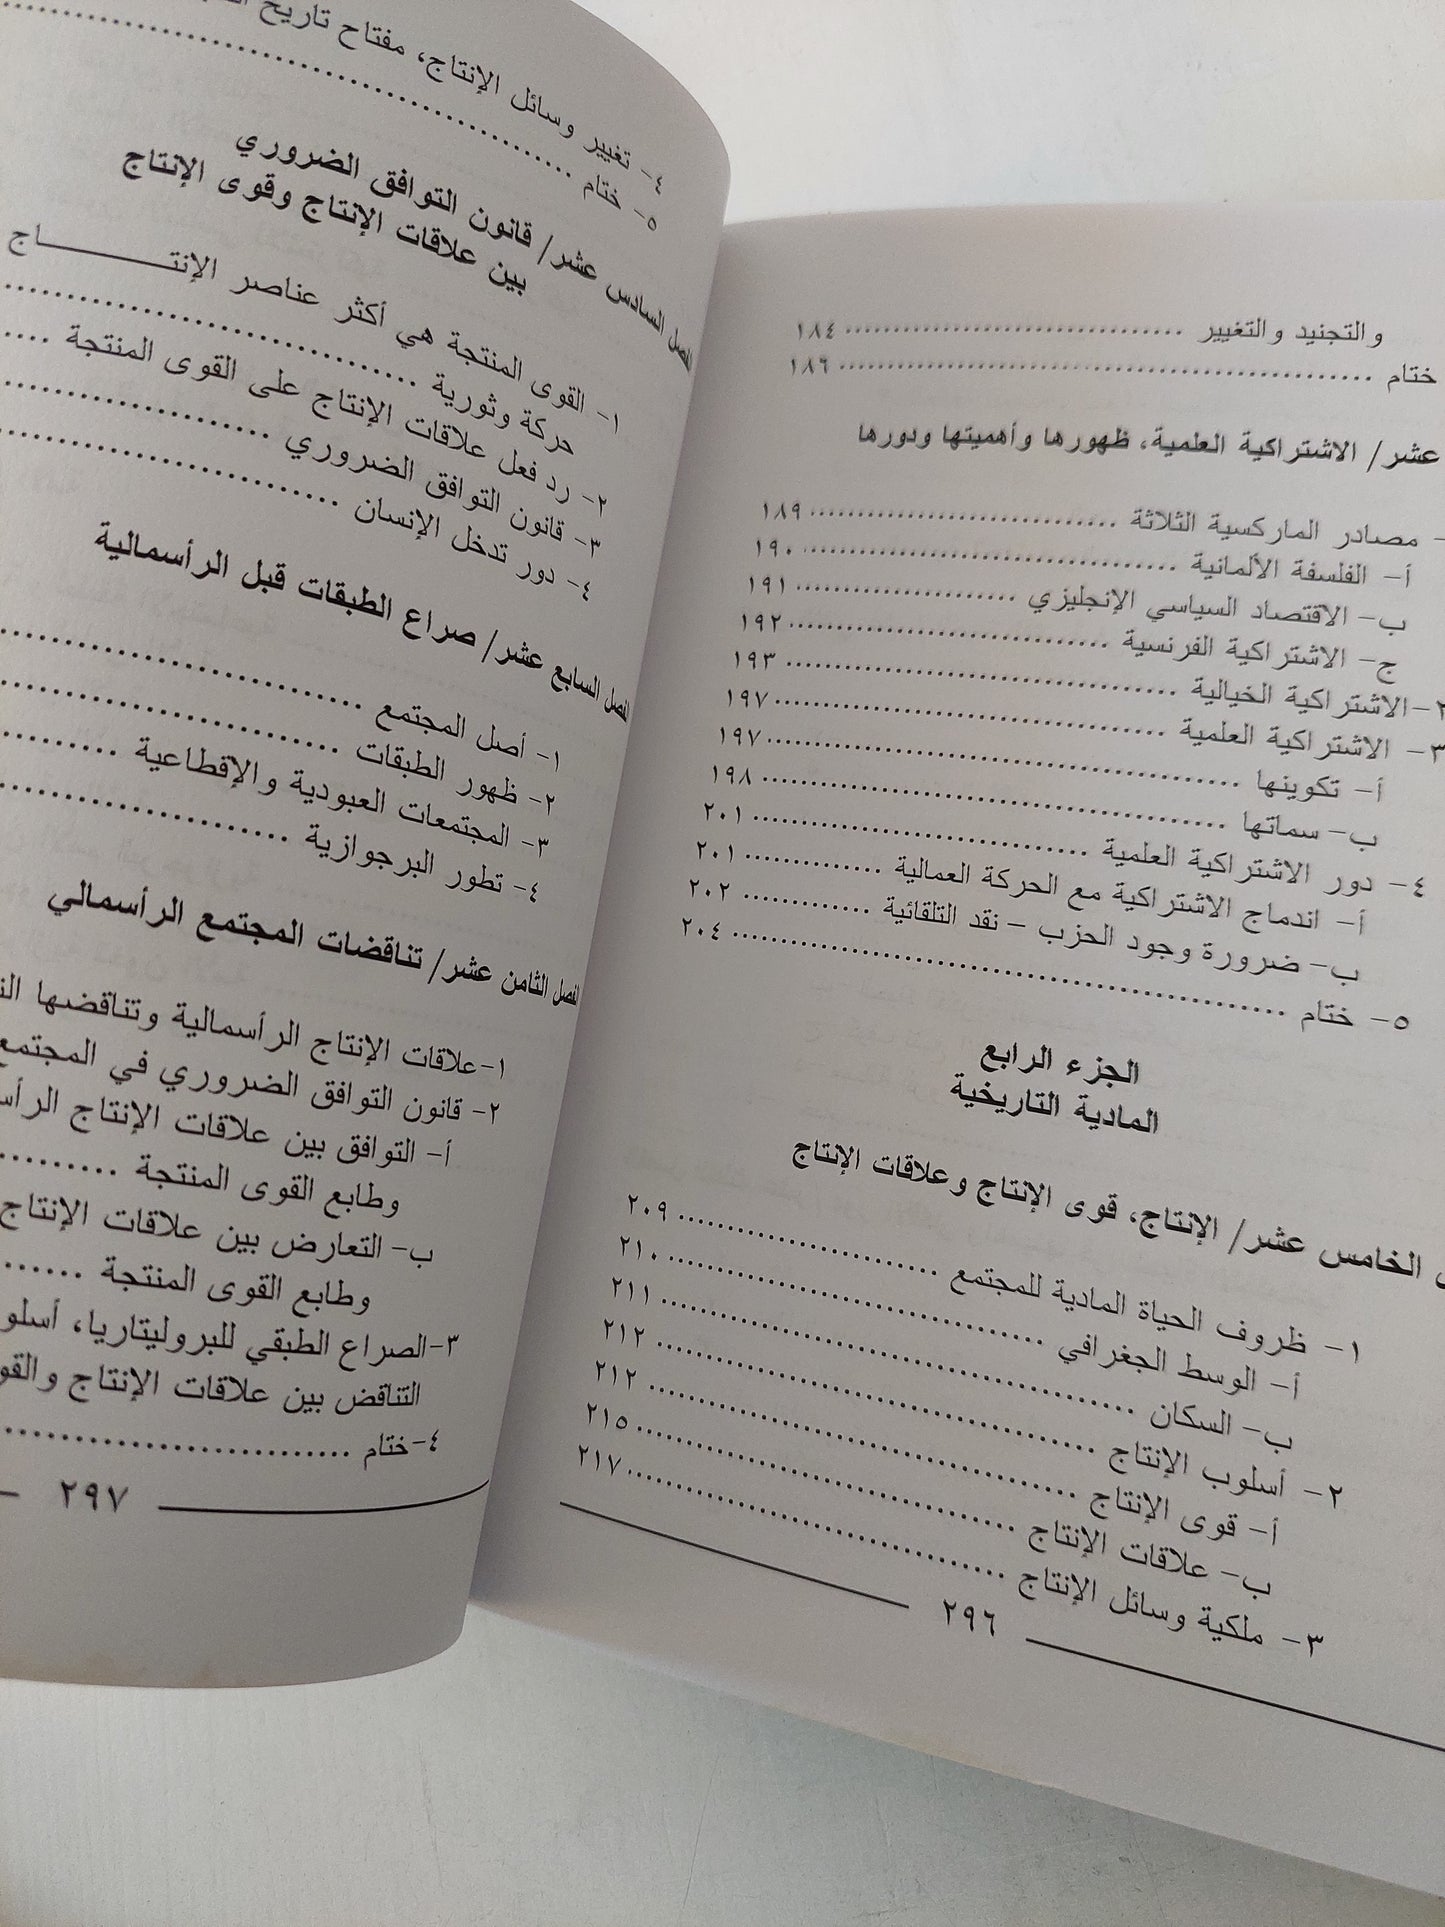 والتجنيد والتغيير ........ ١٨٤
ختام ........ ١٨٦
عشر/ الاشتراكية العلمية، ظهورها وأهميتها ودورها
- مصادر الماركسية الثلاثة ........ ١٨٩
أ- الفلسفة الألمانية ........ ١٩٠
ب- الاقتصاد السياسي الإنجليزي ........ ١٩١
ج- الاشتراكية الفرنسية ........ ١٩٢
٢- الاشتراكية الخيالية ........ ١٩٣
٣- الاشتراكية العلمية ........ ١٩٧
أ- تكوينها ........ ١٩٧
ب- سماتها ........ ١٩٨
٤- دور الاشتراكية العلمية ........ ٢٠١
أ- اندماج الاشتراكية مع الحركة العمالية ........ ٢٠١
ب- ضرورة وجود الحزب - نقد التلقائية ........ ٢٠٢
٥- ختام ........ ٢٠٤
الجزء الرابع
المادية التاريخية
الخامس عشر/ الإنتاج، قوى الإنتاج وعلاقات الإنتاج
١- ظروف الحياة المادية للمجتمع ........ ٢٠٩
أ- الوسط الجغرافي ........ ٢١٠
ب- السكان ........ ٢١١
٢- أسلوب الإنتاج ........ ٢١٢
أ- قوى الإنتاج ........ ٢١٢
ب- علاقات الإنتاج ........ ٢١٥
٣- ملكية وسائل الإنتاج ........ ٢١٧
٢٩٦
٤- تغيير وسائل الإنتاج، مفتاح تاريخ
٥- ختام ........
الفصل السادس عشر/ قانون التوافق الضروري
بين علاقات الإنتاج وقوى الإنتاج
١- القوى المنتجة هي أكثر عناصر الإنتـــــاج
حركة وثورية ........
٢- رد فعل علاقات الإنتاج على القوى المنتجة ....
٣- قانون التوافق الضروري ........
٤- دور تدخل الإنسان ........
الفصل السابع عشر/ صراع الطبقات قبل الرأسمالية
١- أصل المجتمع ........
٢- ظهور الطبقات ........
٣- المجتمعات العبودية والإقطاعية ........
٤- تطور البرجوازية ........
الفصل الثامن عشر/ تناقضات المجتمع الرأسمالي
١- علاقات الإنتاج الرأسمالية وتناقضها
٢- قانون التوافق الضروري في المجتمع
أ- التوافق بين علاقات الإنتاج
وطابع القوى المنتجة ........
ب- التعارض بين علاقات الإنتاج
وطابع القوى المنتجة ......
٣- الصراع الطبقي للبروليتاريا،
التناقض بين علاقات الإنتاج
٤- ختام ........
٢٩٧